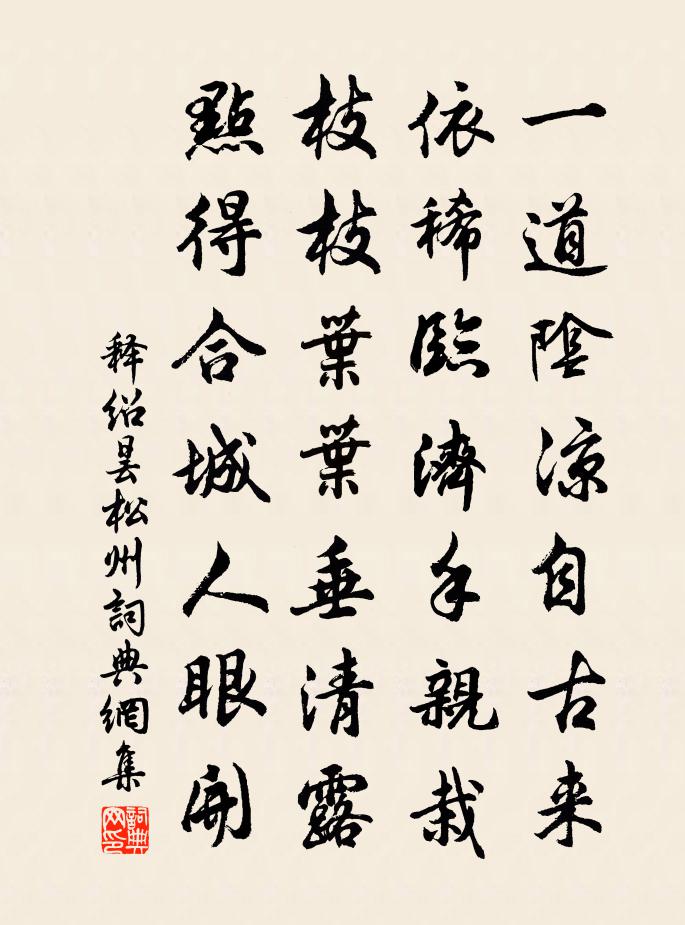 一道陰涼自古来
依稀臨濟手親栽
枝枝葉葉垂清露
點得合城人眼開
释绍昙松州詞典網集
詞典网印